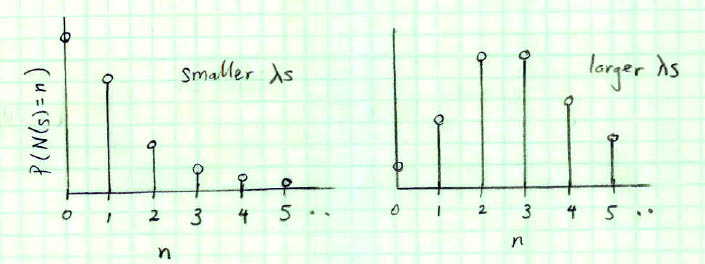 P(N(s)=n)
smaller λs
0 1 2 3 4 5 ..
n
larger λs
0 1 2 3 4 5 ..
n